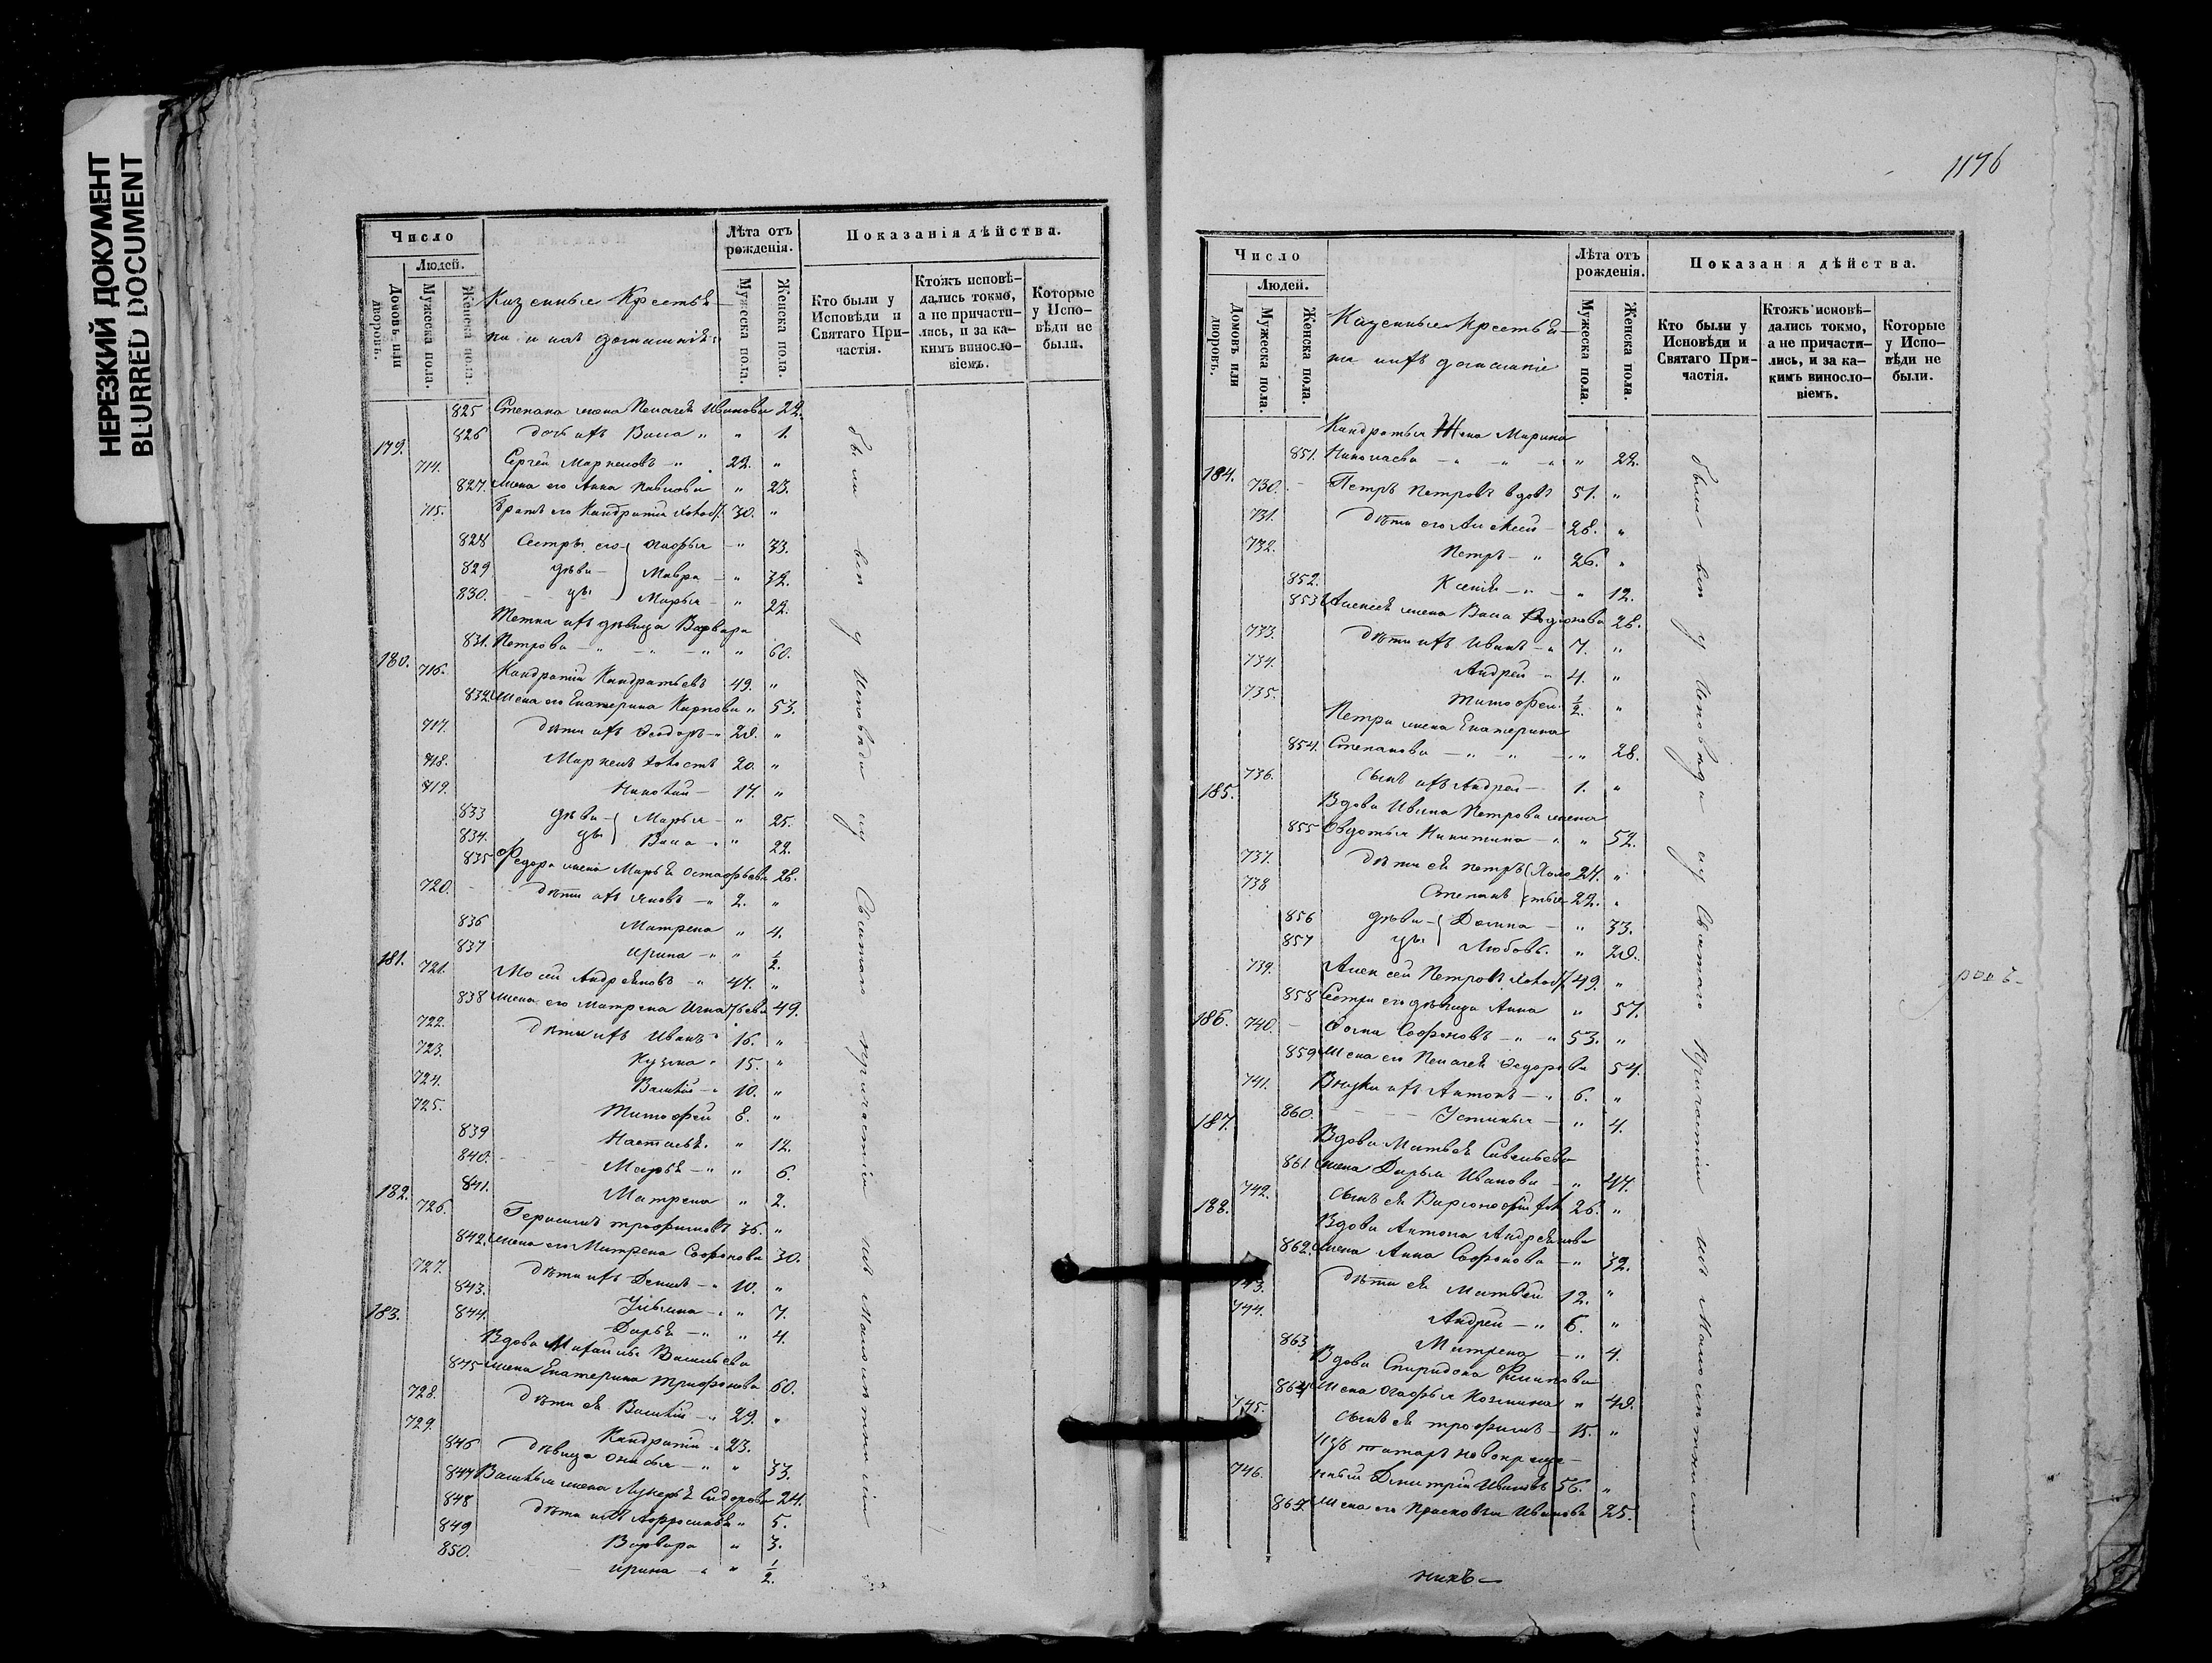 НЕРЕЗКИЙ ДОКУМЕНТ
BLURRED DOCUMENT
Число
Людей.
Домовъ или дворовъ.
Мужеска пола.
Женска пола.
Казенные Крестья-
не и ихъ домашніе
Лѣта отъ рожденія.
Мужеска пола.
Женска пола.
Показанія дѣйства.
Кто были у Исповѣди и Святаго Причастія.
Ктожъ исповѣдались токмо, а не причастились, и за какимъ винословіемъ.
Которые у Исповѣди не были.
825 Степана жена Пелагея Иванова 22.
826 дочь ихъ Васса " " 1.
179. 714. Сергей Маркеловъ - " 22. "
827. Жена его Анна Павлова " 23.
715. Братъ его Кандратій холост. 30. "
828 Сестры его Агафья - " 33.
829 дѣви- Мавра - " 32.
830. цы Марья - " 22.
Тетка ихъ дѣвица Варвара
831. Петрова - " - " - " " 60.
180. 716. Кандратій Кандратьевъ 49. "
832 Жена его Екатерина Карпова " 53.
717. дѣти ихъ Ѳеодоръ - " 28. "
718. Маркелъ холостъ 20. "
719. Николай - 17. "
833 дѣви- Марья - " 25.
834. цы Васа - " " 22.
835 Федора жена Марья Остафьева 28.
720. дѣти ихъ Яковъ - " 2. "
836 Матрена " 4.
837 Ирина - " " 1/2.
181. 721. Мосей Андреяновъ - " 47. "
838 Жена его Матрена Игнатьева 49.
722. дѣти ихъ Иванъ " 16. "
723. Кузма " 15. "
724. Василій - " 10. "
725. Тимофей 8. "
839 Настасья. " 12.
840. Марья - " " 6.
841. Матрена " 2.
182. 726. Герасимъ Трофимовъ 36. "
842. Жена его Матрена Софонова 30.
727. дѣти ихъ Денисъ - " 10. "
843. Ульяна - " " 7.
183. 844. Дарья - " " 4.
Вдова Михаилы Васильева
845 жена Екатерина Трифонова 60.
728. дѣти ея Василій - " 29. "
729. Кандратій - " 23.
846 дѣвица Онисья - " " 33.
847 Василья жена Лукерья Сидорова 24.
848 дѣти ихъ Афросинья " 5.
849 Варвара " 3.
850. Ирина - " " 1/2.
были вси у Исповѣди и у Святаго причастія изъ малолѣтними
1176
Число
Людей.
Домовъ или дворовъ.
Мужеска пола.
Женска пола.
Казенные Крестья-
не ихъ домашніе
Лѣта отъ рожденія.
Мужеска пола.
Женска пола.
Показанія дѣйства.
Кто были у Исповѣди и Святаго Причастія.
Ктожъ исповѣдались токмо, а не причастились, и за какимъ винословіемъ.
Которые у Исповѣди не были.
Кандратья Жена Марина
851. Николаева - " - " - " " 22.
184. 730. - Петръ Петровъ вдовъ 51. "
731. дѣти его Алексей - 28. "
732. Петръ - " 26. "
852. Ксенія - " - " 12.
853 Алексея жена Васа Родіонова 28.
733. дѣти ихъ Иванъ - " 7. "
734. Андрей - " 4. "
735. Тимофей 1/2. "
Петра жена Екатерина
854. Степанова - " - " - " " 28.
736. сынъ ихъ Андрей - 1. "
185. Вдова Ивана Петрова жена
855 Овдотья Никитина - " " 52.
737. дѣти ея Петръ Холо 24. "
738 Степанъ стые 22. "
856 дѣви- Домна - " 33.
857 цы Любовь. " 28.
739. Алексей Петровъ холост 49. "
858 Сестра его дѣвица Анна " 57.
186. 740. - Фома Софоновъ - " - " 53. "
859 Жена его Пелагея Ѳедорова 54.
741. Внуки ихъ Антонъ - " 6. "
187. 860. Устинья - " 4.
Вдова Матвея Савельева
861 жена Дарья Иванова - " 47.
742. сынъ ея Варфоломей 26. "
188. Вдова Антона Андреянова
862. жена Анна Софонова - " 32.
743. дѣти ея Матвей 12. "
744. Андрей - " 6. "
863 Матрена - " 4.
Вдова Спиридона Филипова
864 жена Агафья Козмина " 48.
745. сынъ ея Трофимъ - 15. "
Изъ татаръ новокреще-
746. нный Дмитрій Ивановъ 56. "
864. Жена его Прасковья Иванова 25.
были вси у Исповѣди и у Святаго Причастія изъ малолѣтними
никъ -